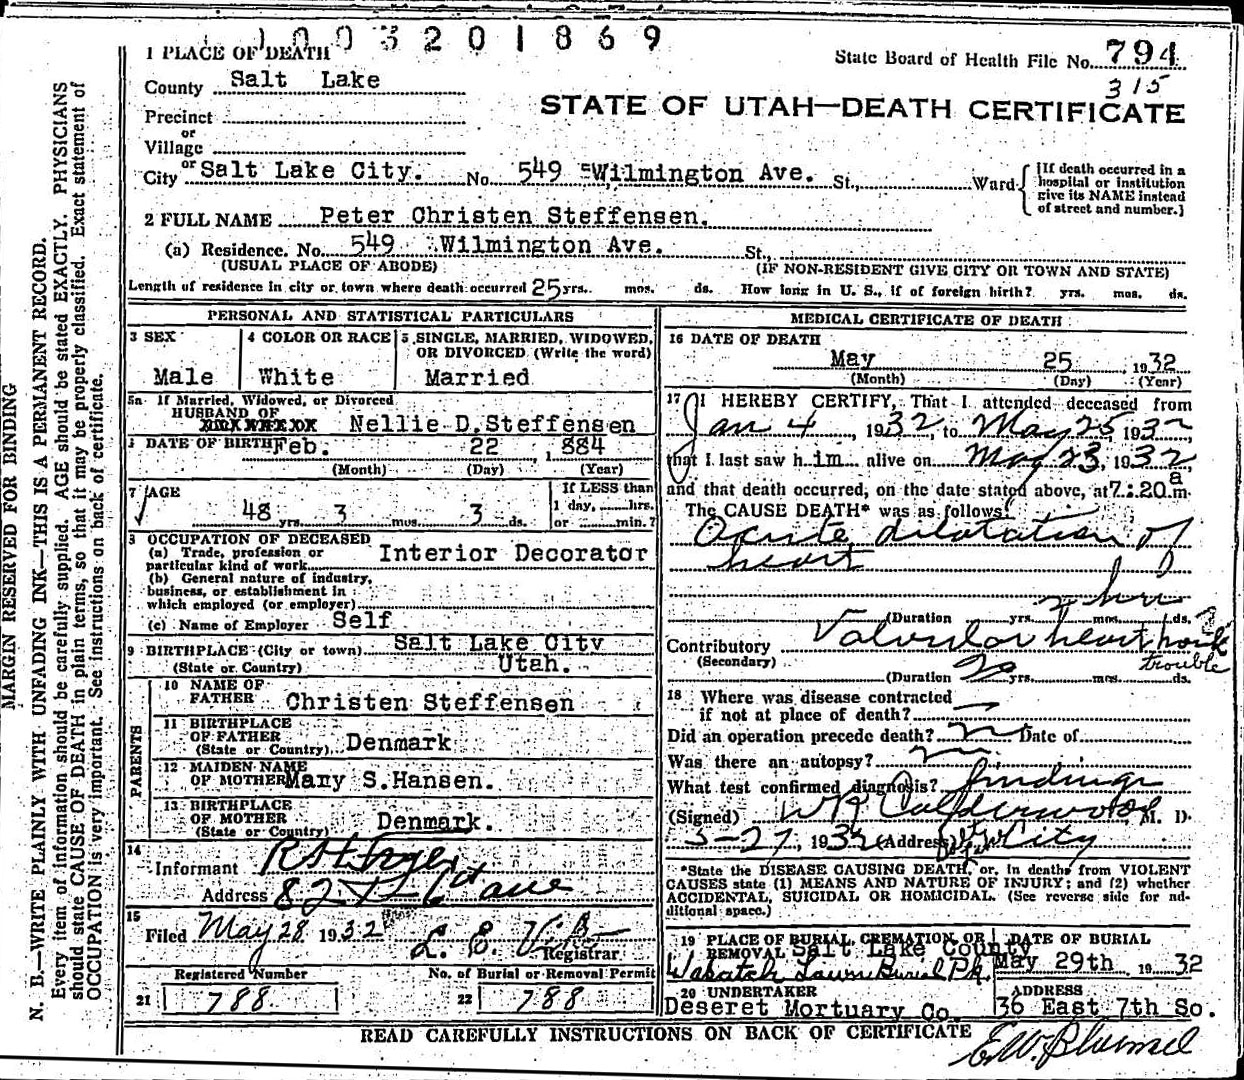 1003201869
1 PLACE OF DEATH
State Board of Health File No. 794
315
County Salt Lake
STATE OF UTAH—DEATH CERTIFICATE
Precinct
or
Village
or
City Salt Lake City. No. 549 Wilmington Ave. St., Ward
[If death occurred in a hospital or institution give its NAME instead of street and number.]
2 FULL NAME Peter Christen Steffensen.
(a) Residence. No. 549 Wilmington Ave. St.,
(USUAL PLACE OF ABODE) (IF NON-RESIDENT GIVE CITY OR TOWN AND STATE)
Length of residence in city or town where death occurred 25 yrs. mos. ds. How long in U. S., if of foreign birth? yrs. mos. ds.
PERSONAL AND STATISTICAL PARTICULARS
3 SEX
Male
4 COLOR OR RACE
White
5 SINGLE, MARRIED, WIDOWED,
OR DIVORCED (Write the word)
Married
5a If Married, Widowed, or Divorced
HUSBAND OF
Nellie D. Steffensen
DATE OF BIRTH Feb. 22, 1884
(Month) (Day) (Year)
7 AGE
48 yrs. 3 mos. 3 ds.
If LESS than
1 day, hrs.
or min.?
8 OCCUPATION OF DECEASED
(a) Trade, profession or
particular kind of work Interior Decorator
(b) General nature of industry,
business, or establishment in
which employed (or employer)
(c) Name of Employer Self
9 BIRTHPLACE (City or town) Salt Lake City
(State or Country) Utah.
PARENTS
10 NAME OF
FATHER Christen Steffensen
11 BIRTHPLACE
OF FATHER
(State or Country) Denmark
12 MAIDEN NAME
OF MOTHER Mary S. Hansen.
13 BIRTHPLACE
OF MOTHER
(State or Country) Denmark.
14
Informant
Address 6th ave
15
Filed May 28 1932 L. E.
Registrar
Registered Number
21 788
No. of Burial or Removal Permit
22 788
MEDICAL CERTIFICATE OF DEATH
16 DATE OF DEATH
May 25, 1932
(Month) (Day) (Year)
17 I HEREBY CERTIFY, That I attended deceased from
Jan 4, 1932, to May 25, 1932
that I last saw him alive on May 23, 1932,
and that death occurred, on the date stated above, at 7:20 a m.
The CAUSE DEATH* was as follows:
Acute dilatation of
heart
2 hrs
(Duration yrs. mos. ds.
Contributory Valvular heart
(Secondary) trouble
(Duration yrs. mos. ds.
18 Where was disease contracted
if not at place of death?
Did an operation precede death? Date of
Was there an autopsy?
What test confirmed diagnosis? findings
(Signed) W R Calderwood M. D.
5-27, 1932 (Address) City
*State the DISEASE CAUSING DEATH, or, in deaths from VIOLENT
CAUSES state (1) MEANS AND NATURE OF INJURY; and (2) whether
ACCIDENTAL, SUICIDAL OR HOMICIDAL. (See reverse side for additional space.)
19 PLACE OF BURIAL, CREMATION, OR
REMOVAL Salt Lake County
Wasatch Lawn Burial Pk.
DATE OF BURIAL
May 29th 1932
20 UNDERTAKER
Deseret Mortuary Co.
ADDRESS
36 East 7th So.
READ CAREFULLY INSTRUCTIONS ON BACK OF CERTIFICATE
MARGIN RESERVED FOR BINDING
N. B.—WRITE PLAINLY WITH UNFADING INK—THIS IS A PERMANENT RECORD.
Every item of information should be carefully supplied. AGE should be stated EXACTLY. PHYSICIANS
should state CAUSE OF DEATH in plain terms, so that it may be properly classified. Exact statement of
OCCUPATION is very important. See instructions on back of certificate.